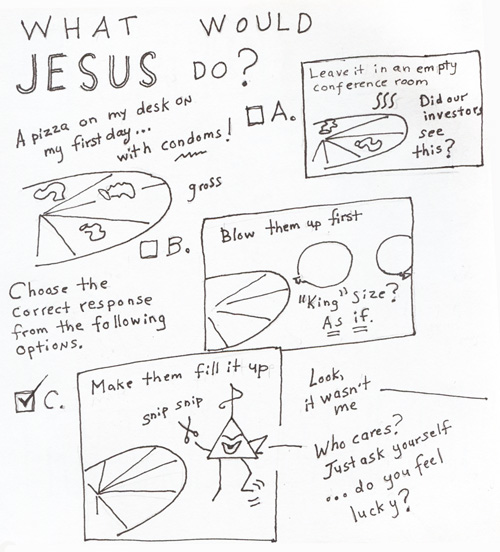 WHAT WOULD
JESUS DO?
A pizza on my desk on
my first day...
with condoms!
gross
Choose the
correct response
from the following
options.
A.
Leave it in an empty
conference room
SSS
Did our
investors
see
this?
B.
Blow them up first
"King" size?
As if.
C.
Make them fill it up
snip snip
Look,
it wasn't
me
Who cares?
Just ask yourself
... do you feel
lucky?